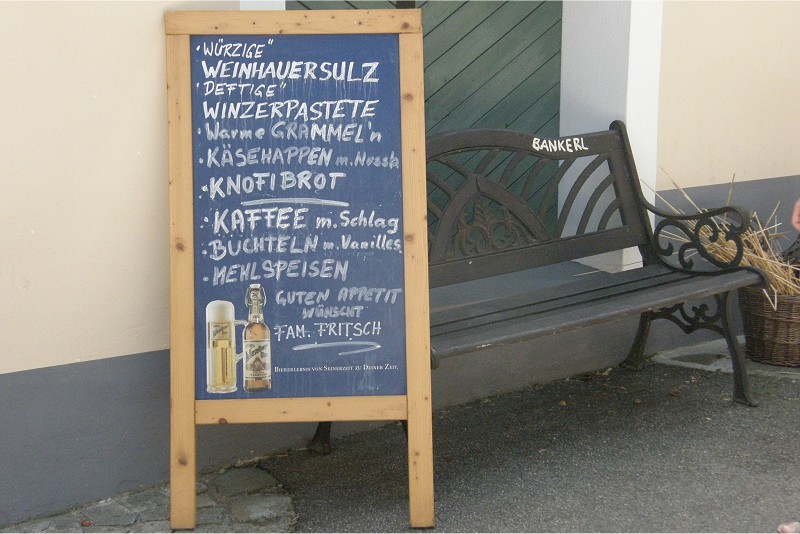 • WÜRZIGE"
WEINHAUERSULZ
"DEFTIGE"
WINZERPASTETE
• Warme GRAMMEL'n
• KÄSEHAPPEN m. Nussk
• KNOFIBROT
• KAFFEE m. Schlag
• BUCHTELN m. Vanilles.
• MEHLSPEISEN
GUTEN APPETIT
WÜNSCHT
FAM. FRITSCH
BIERERLEBNIS VON SEINERZEIT ZU DEINER ZEIT.
BANKERL